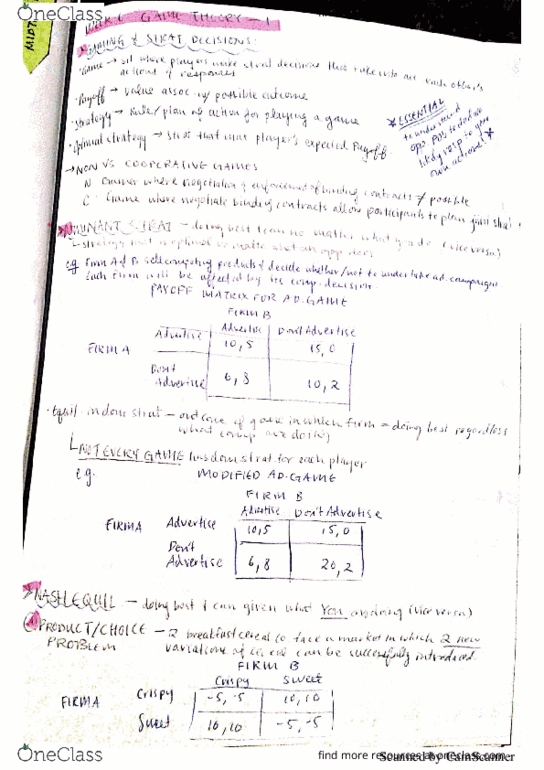 OneClass
GAME THEORY - 1
GAMING & STRAT DECISIONS:
Game → sit where players make strat decisions that take into acc each other's
actions & responses
Payoff → value assoc w/ possible outcome
Strategy → Rule/plan of action for playing a game
Optimal strategy → strat that max player's expected Payoff
* ESSENTIAL
to understand
opp. POV, to deduce
likely resp to
own actions! *
→ NON VS COOPERATING GAMES
N Games where negotiation & enforcement of binding contracts ≠ possible
C Game where negotiate binding contracts allow participants to plan joint strat
DOMINANT STRAT - doing best I can no matter what you do (vice versa)
strategy that is optimal no matter what an opp does
eg Firm A & B sell competing products & decide whether/not to undertake ad. campaigns
Each Firm will be affected by its comp. decision.
PAYOFF MATRIX FOR AD. GAME
FIRM B
Advertise Don't Advertise
FIRM A Advertise 10, 5 15, 0
Don't
Advertise 6, 8 10, 2
Equil. in dom strat - outcome of game in which firm = doing best regardless
what comp are doing
NOT EVERY GAME has dom strat for each player
eg. MODIFIED AD. GAME
FIRM B
Advertise Don't Advertise
FIRM A Advertise 10, 5 15, 0
Don't
Advertise 6, 8 20, 2
NASH EQUIL - doing best I can given what YOU are doing (vice versa)
PRODUCT/CHOICE - 2 breakfast cereal co face a market in which 2 new
PROBLEM variations of cereal can be successfully introduced.
FIRM B
Crispy Sweet
FIRM A Crispy -5, -5 10, 10
Sweet 10, 10 -5, -5
OneClass
find more resources at oneclass.com
Scanned by CamScanner